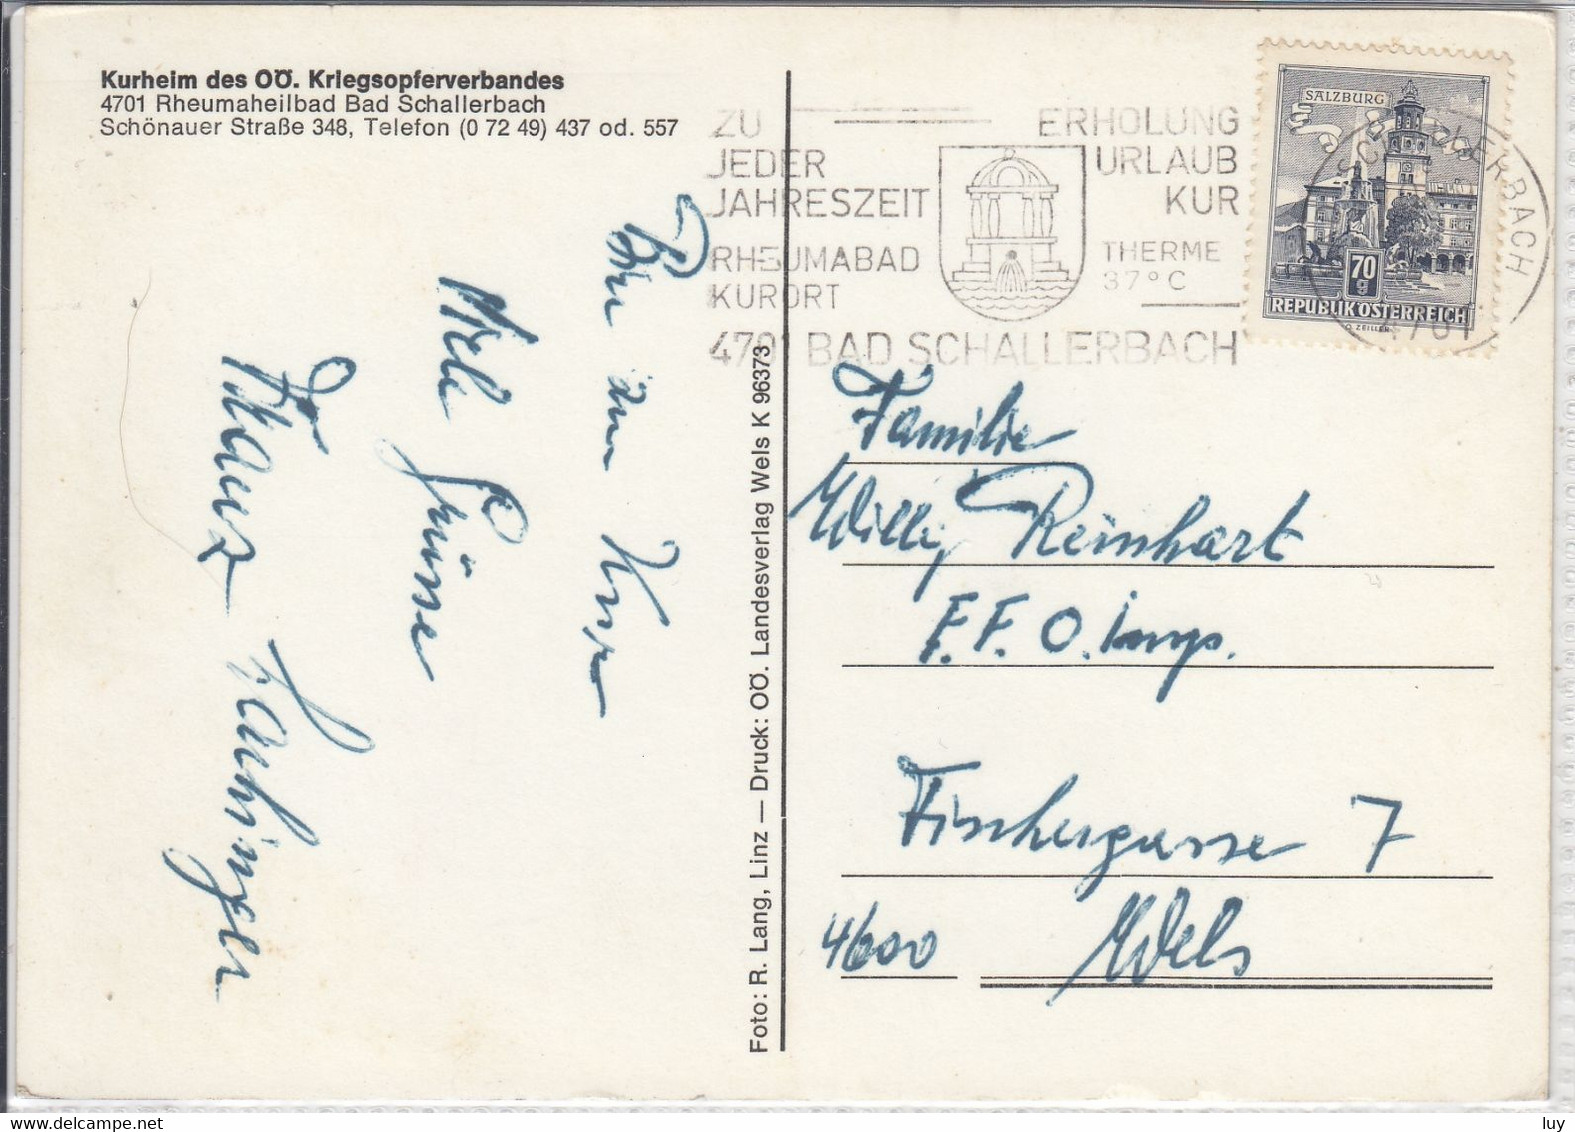 Kurheim des OÖ. Kriegsopferverbandes
4701 Rheumaheilbad Bad Schallerbach
Schönauer Straße 348, Telefon (0 72 49) 437 od. 557
ZU
JEDER
JAHRESZEIT
RHEUMABAD
KURORT
ERHOLUNG
URLAUB
KUR
THERME
37° C
4701 BAD SCHALLERBACH
SALZBURG
70
g
REPUBLIK ÖSTERREICH
O. ZEILLER
SCHALLERBACH
4701
Bin zur Kur
Viele Grüsse
Foto: R. Lang, Linz — Druck: OÖ. Landesverlag Wels K 96373
Familie
Willy Reinhart
F. F. O. Insp.
Fischergasse 7
4600 Wels
www.delcampe.net
luy